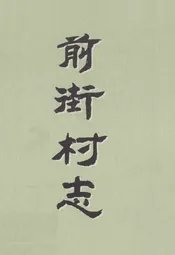 前街村志